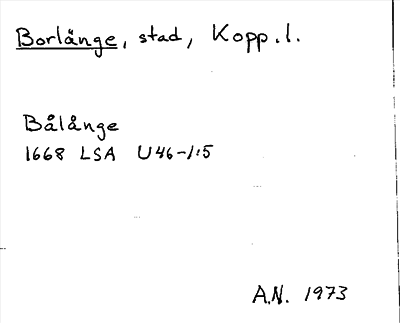 Borlänge, stad, Kopp.l.
Bålånge
1668 LSA U46-1:5
A.N. 1973